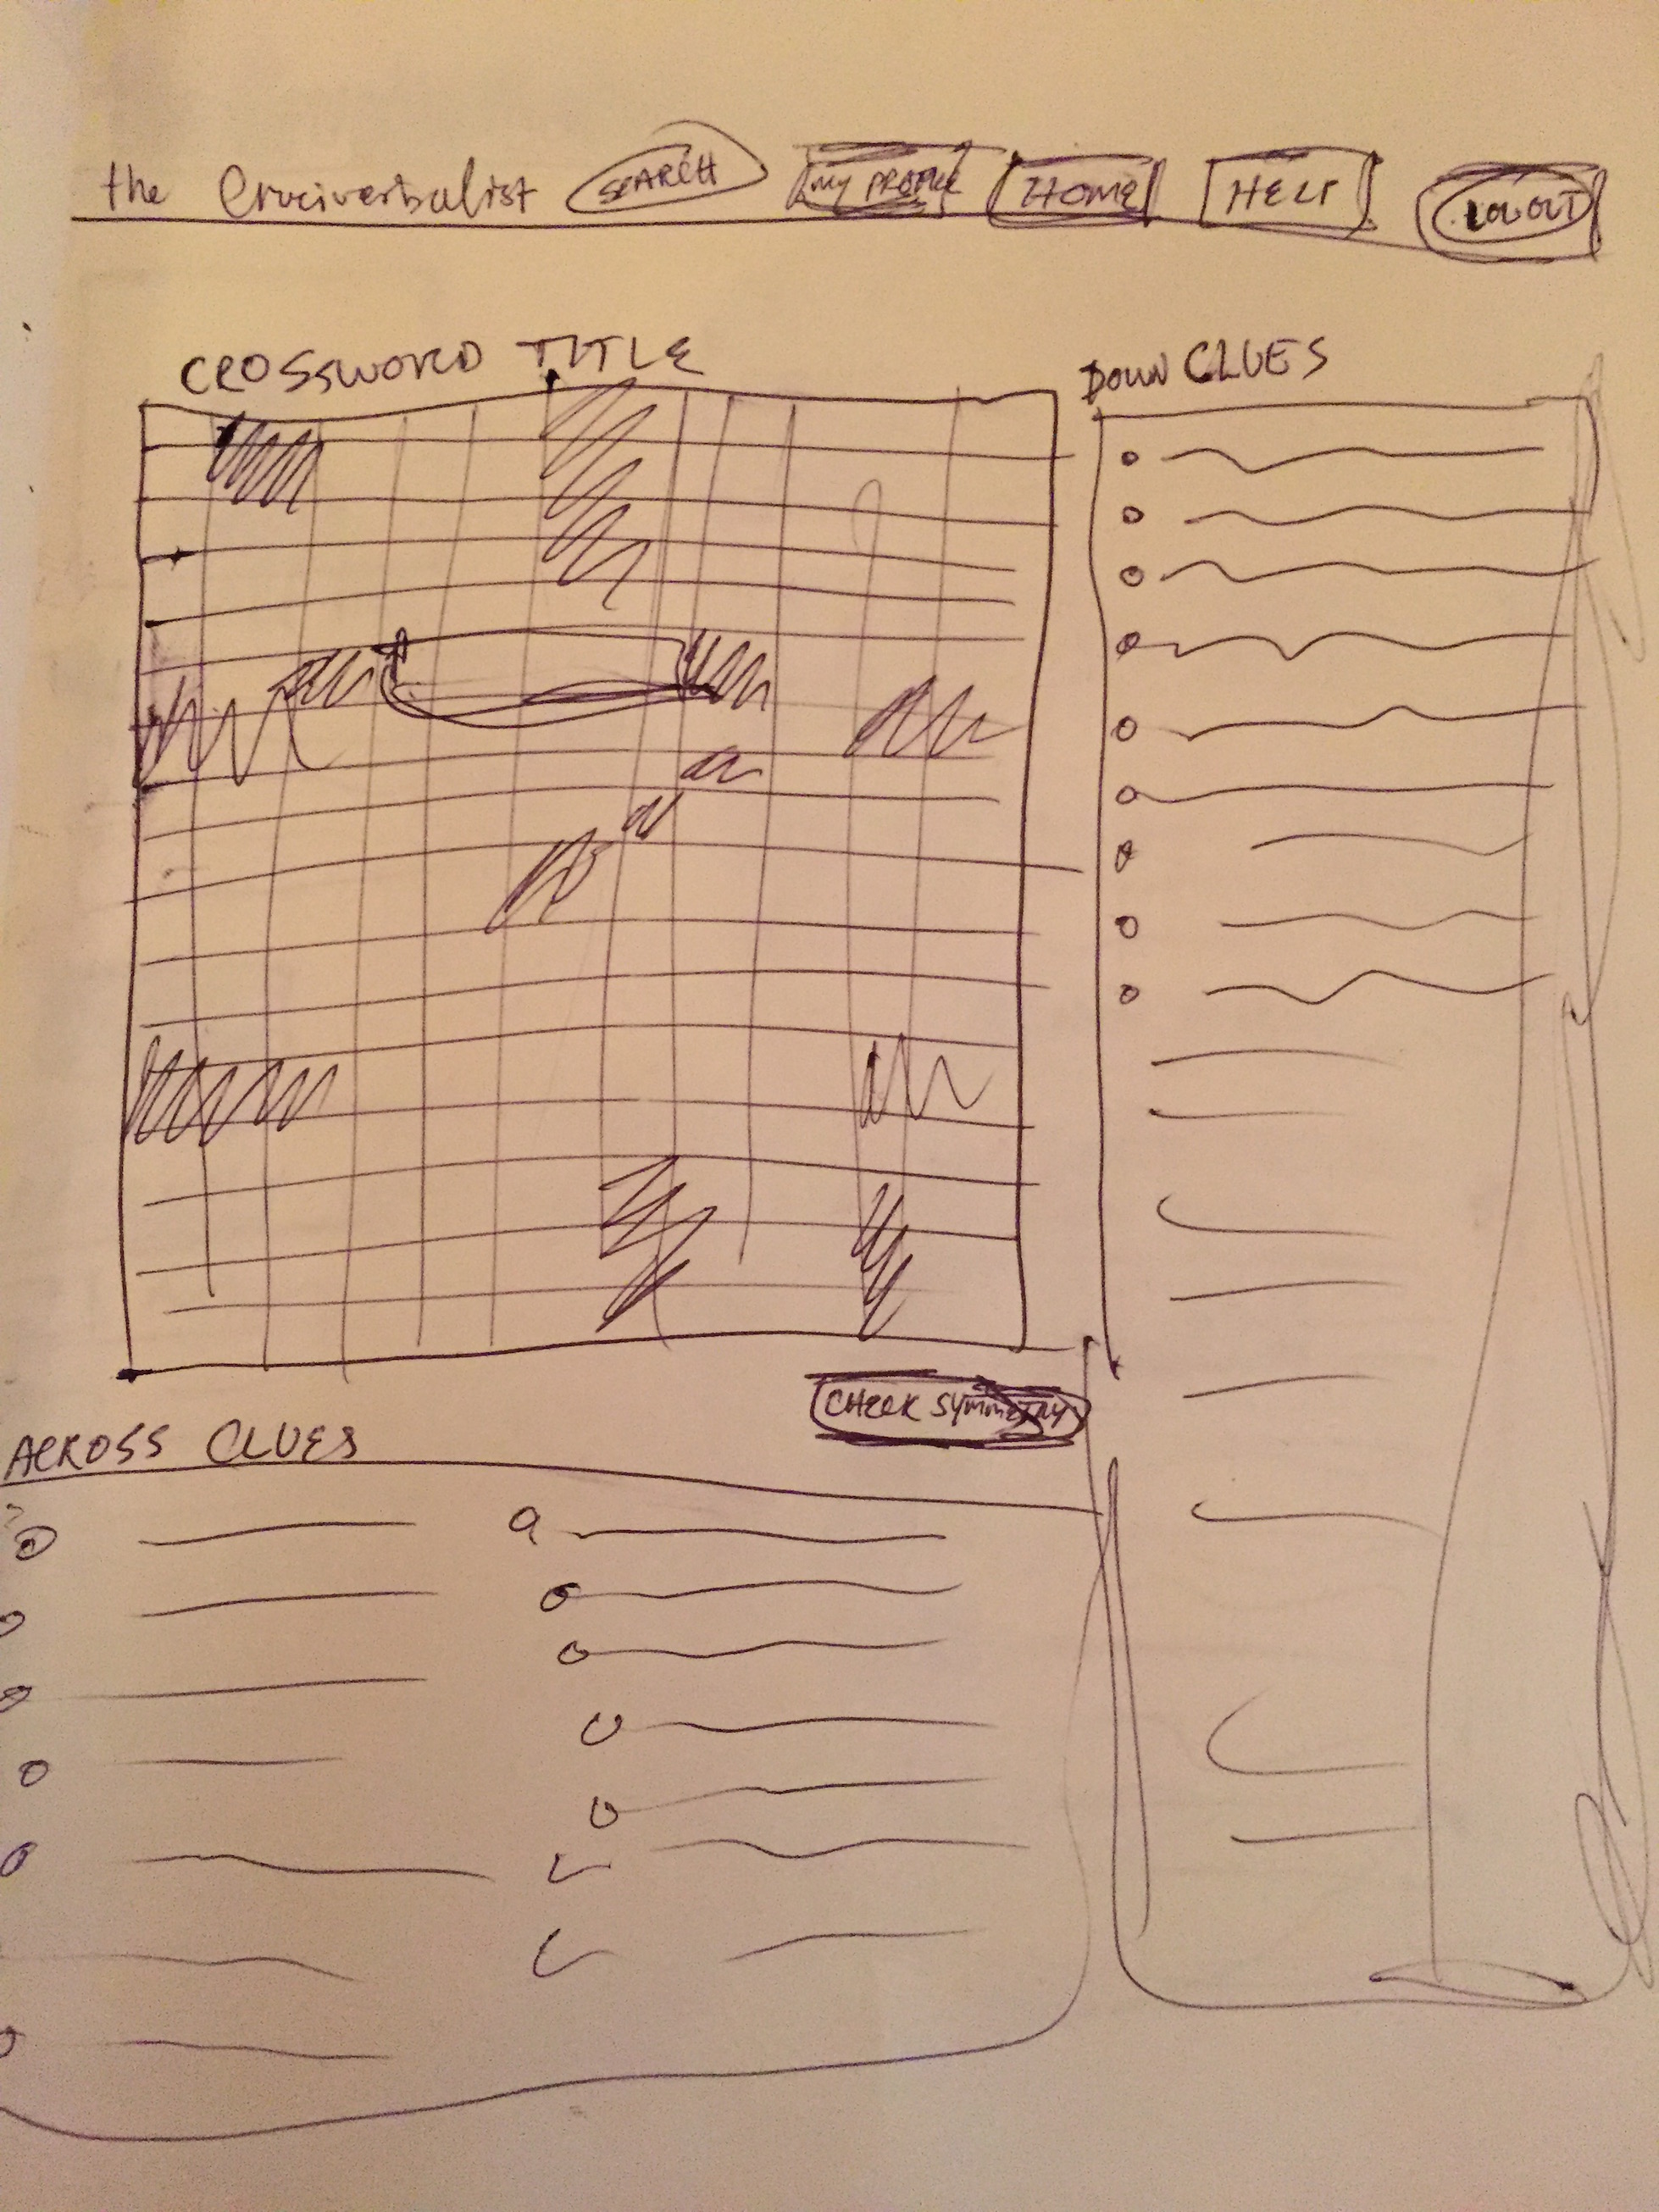 the Cruciverbalist SEARCH MY PROFILE HOME HELP LOGOUT
CROSSWORD TITLE
DOWN CLUES
CHECK SYMMETRY
ACROSS CLUES